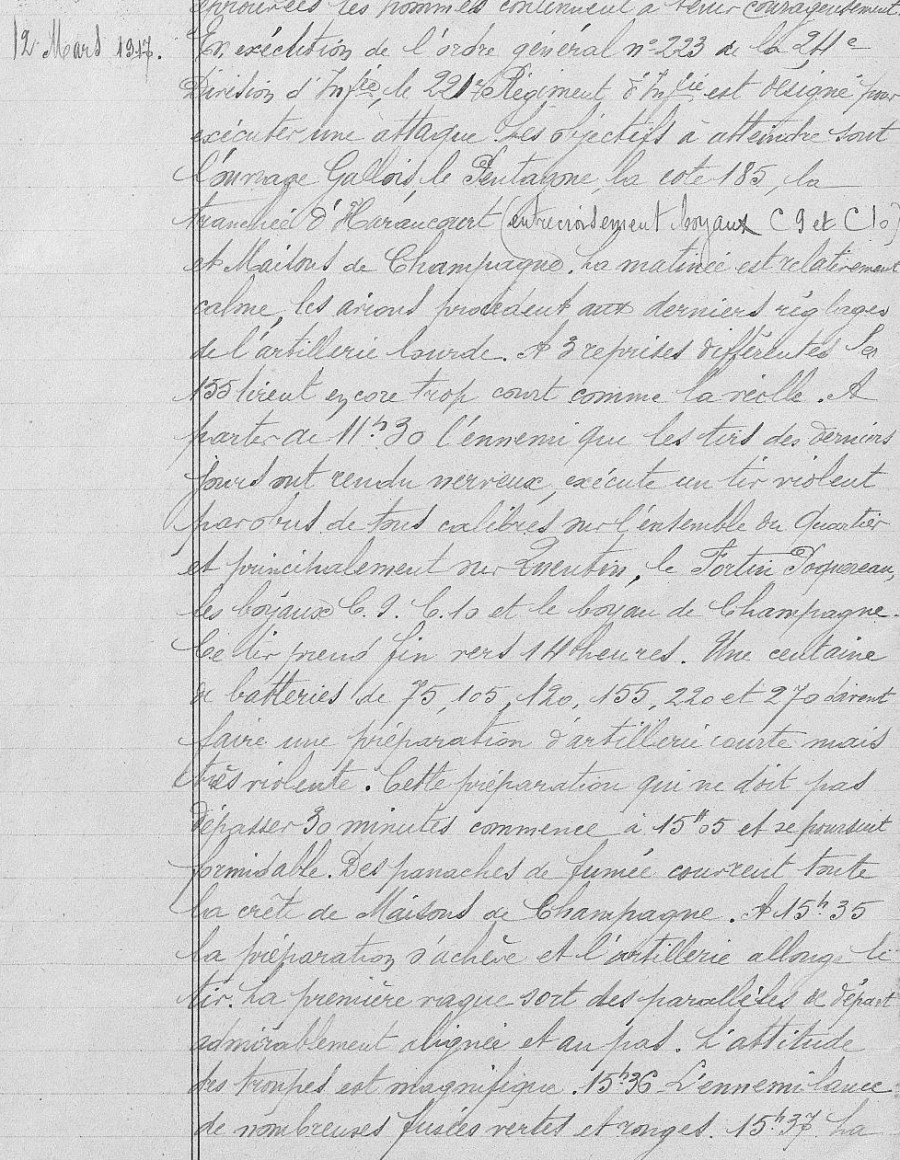 les hommes continuent à tenir courageusement.
12 Mars 1917.
En exécution de l'ordre général n° 223 de la 2411e
Division d'Infie, le 221e Régiment d'Infie est désigné pour
exécuter une attaque. Les objectifs à atteindre sont
l'ouvrage Gallois, le Pentagone, la cote 185, la
tranchée d'Haraucourt (entrecroisement boyaux C 9 et C 10)
et Maisons de Champagne. La matinée est relativement
calme, les avions procèdent aux derniers réglages
de l'artillerie lourde. A 3 reprises différentes les
155 tirent encore trop court comme la veille. A
partir de 11h30 l'ennemi que les tirs des derniers
jours ont rendu nerveux, exécute un tir violent
par obus de tous calibres sur l'ensemble du quartier
et principalement sur Quentin, le Fortin Poquereau,
les boyaux C. 9. C. 10 et le boyau de Champagne.
Ce tir prend fin vers 14 heures. Une centaine
de batteries de 75, 105, 120, 155, 220 et 270 doivent
faire une préparation d'artillerie courte mais
très violente. Cette préparation qui ne doit pas
dépasser 30 minutes commence à 15h05 et se poursuit
formidable. Des panaches de fumée couvrent toute
la crête de Maisons de Champagne. A 15h35
la préparation s'achève et l'artillerie allonge le
tir. La première vague sort des parallèles de départ
admirablement alignée et au pas. L'attitude
des troupes est magnifique. 15h36 L'ennemi lance
de nombreuses fusées vertes et rouges. 15h37 La